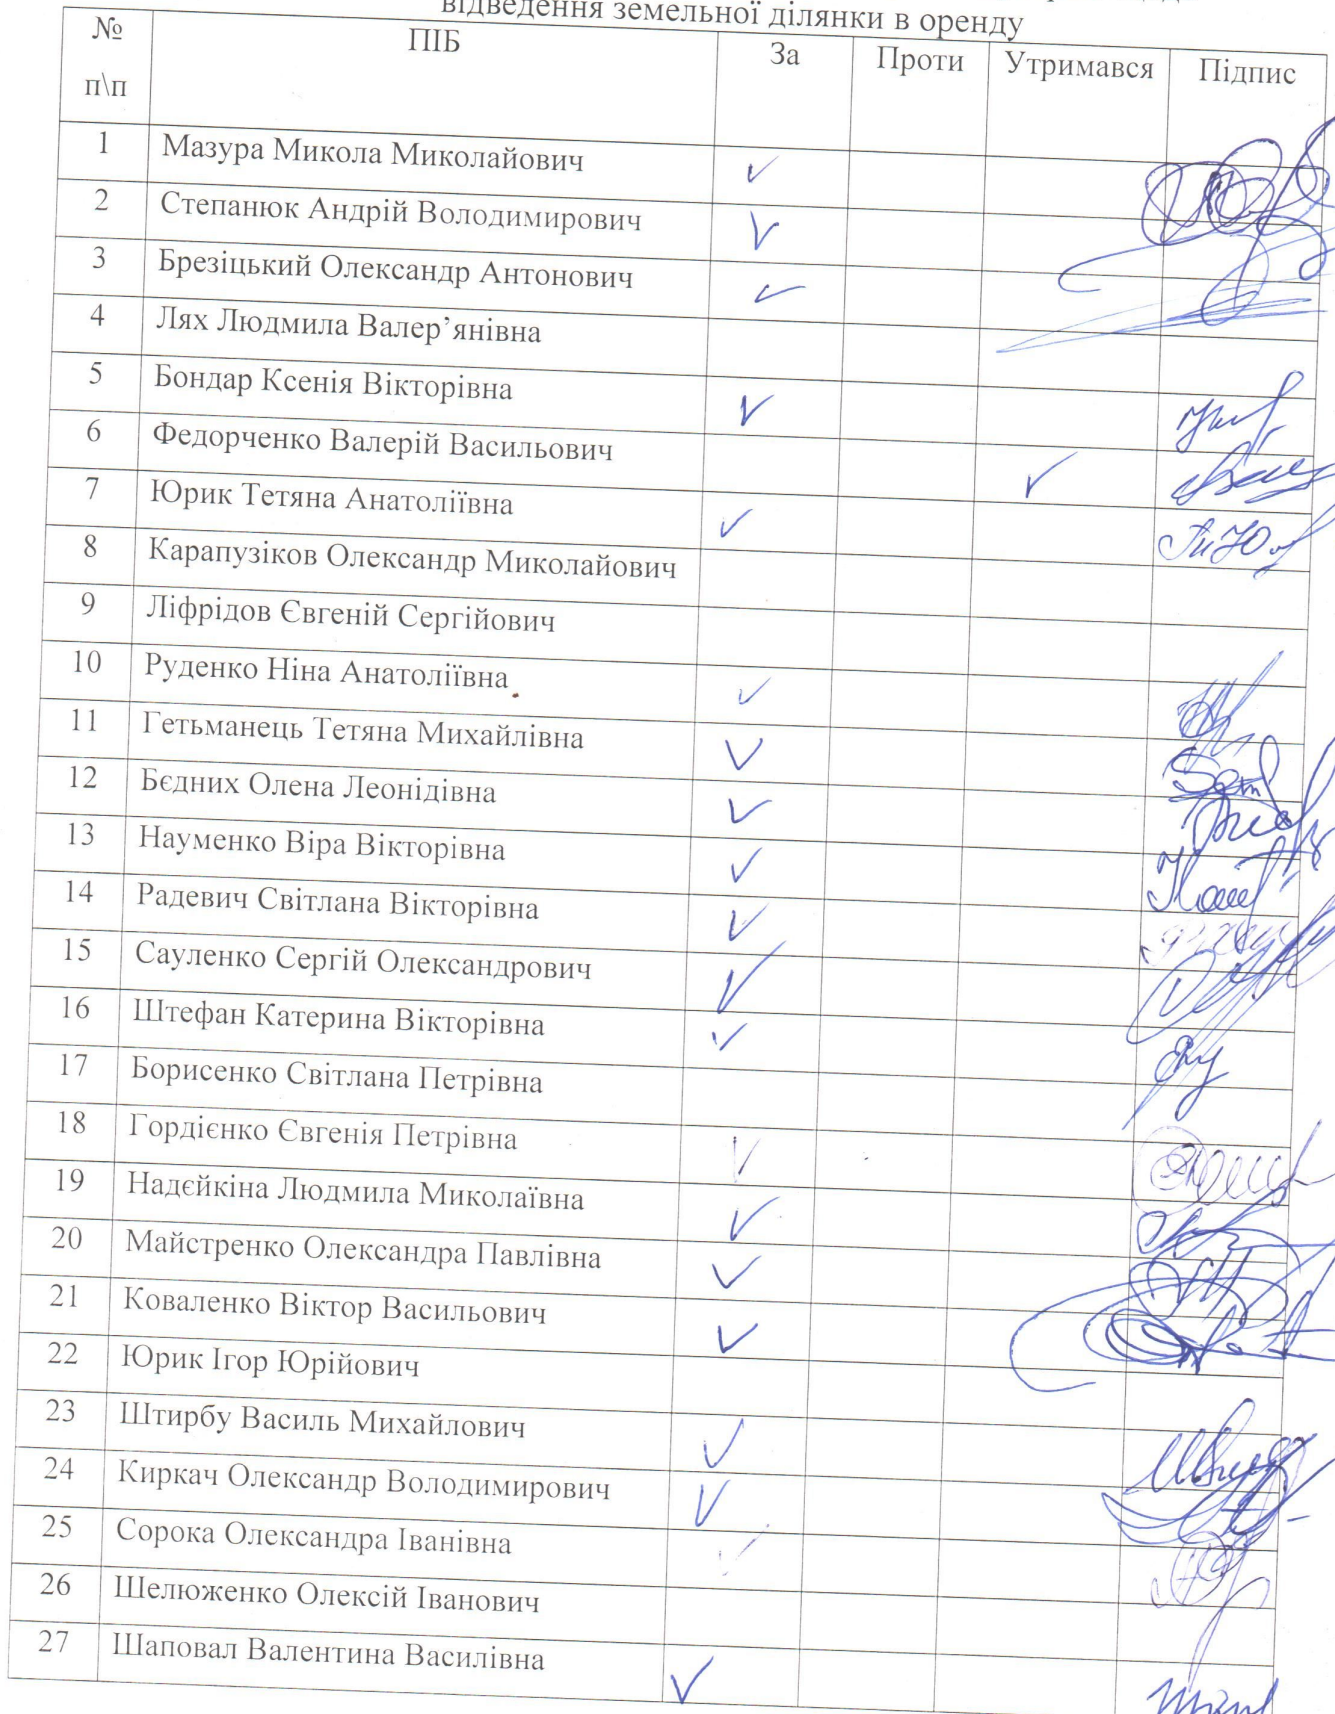 відведення земельної ділянки в оренду
№ п\п ПІБ За Проти Утримався Підпис
1 Мазура Микола Миколайович
2 Степанюк Андрій Володимирович
3 Брезіцький Олександр Антонович
4 Лях Людмила Валер’янівна
5 Бондар Ксенія Вікторівна
6 Федорченко Валерій Васильович
7 Юрик Тетяна Анатоліївна
8 Карапузіков Олександр Миколайович
9 Ліфрідов Євгеній Сергійович
10 Руденко Ніна Анатоліївна
11 Гетьманець Тетяна Михайлівна
12 Бєдних Олена Леонідівна
13 Науменко Віра Вікторівна
14 Радевич Світлана Вікторівна
15 Сауленко Сергій Олександрович
16 Штефан Катерина Вікторівна
17 Борисенко Світлана Петрівна
18 Гордієнко Євгенія Петрівна
19 Надєйкіна Людмила Миколаївна
20 Майстренко Олександра Павлівна
21 Коваленко Віктор Васильович
22 Юрик Ігор Юрійович
23 Штирбу Василь Михайлович
24 Киркач Олександр Володимирович
25 Сорока Олександра Іванівна
26 Шелюженко Олексій Іванович
27 Шаповал Валентина Василівна